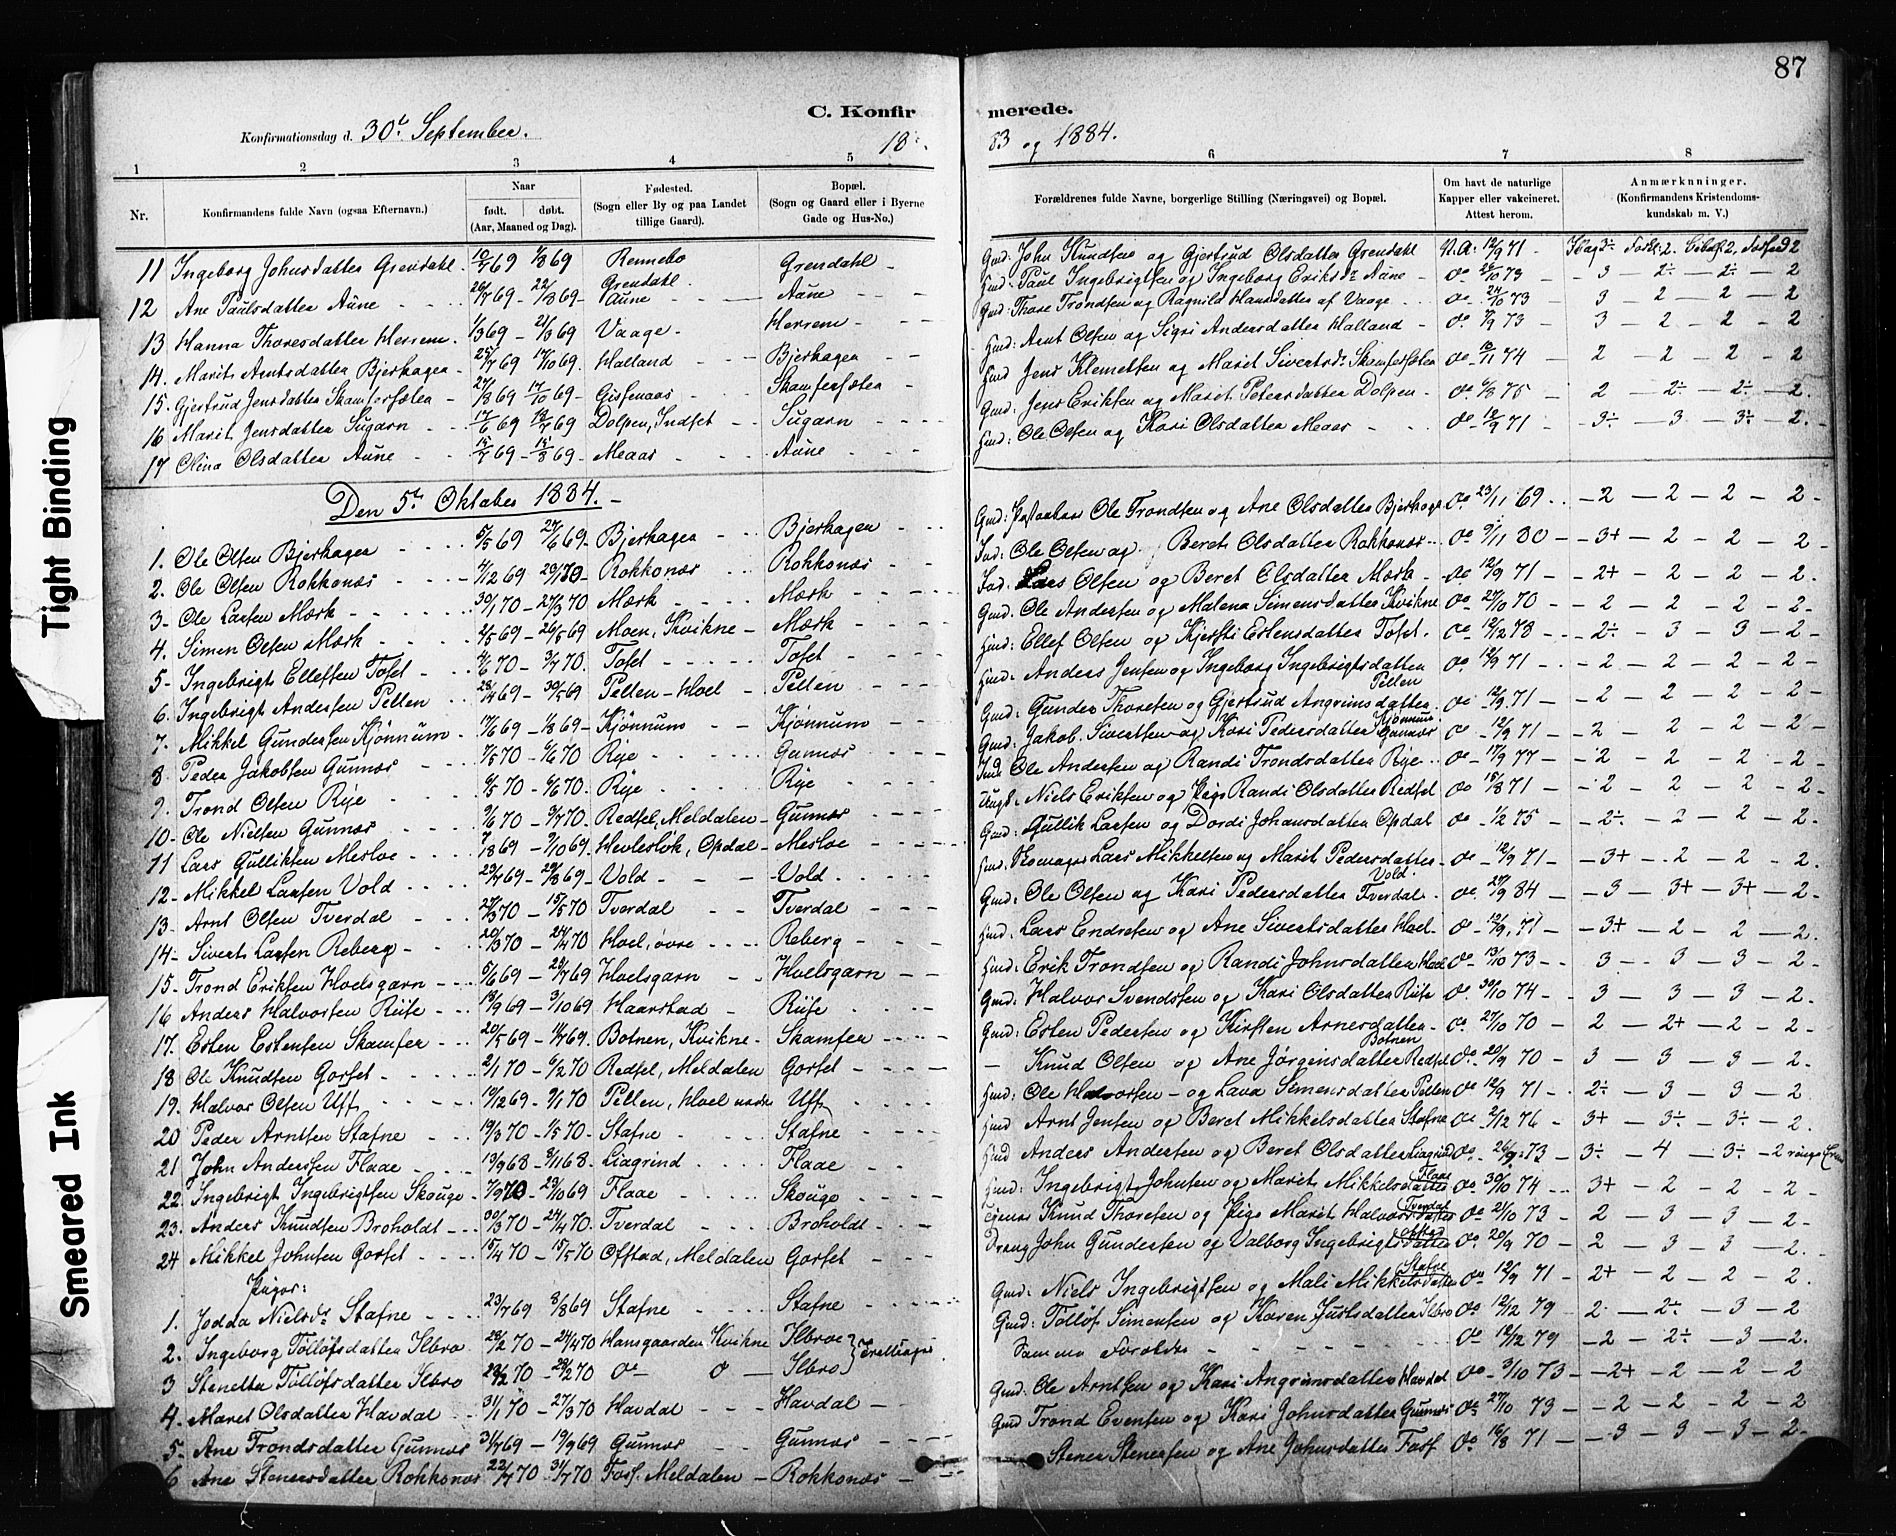 87
C. Konfirmerede.
Konfirmationsdag d. 30t September. 1883 og 1884.
1 2 3 4 5 6 7 8
Nr. Konfirmandens fulde Navn (ogsaa Efternavn.) Naar født. døbt. (Aar, Maaned og Dag). Fødested. (Sogn eller By og paa Landet tillige Gaard). Bopæl. (Sogn og Gaard eller i Byerne Gade og Hus-No.) Forældrenes fulde Navne, borgerlige Stilling (Næringsvei) og Bopæl. Om havt de naturlige Kapper eller vakcineret. Attest herom. Anmærkninger. (Konfirmandens Kristendomskundskab m. V.)
11 Ingeborg Johnsdatter Grendahl 10/7 69 1/8 69 Rennebo Grendahl Grendahl Gmd: John Knudsen og Gjertrud Olsdatter Grendahl V.A: 12/9 71
12 Ane Paulsdatter Aune 22/8 69 Aune Aune Gmd: Paul Ingebrigtsen og Ingeborg Eriksdr Aune do 3 - 2÷ - 2÷ - 2
13 Hanna Thoresdatter Herrem 1/3 69 21/3 69 Vaage Herrem Gmd: Thore Trondsen og Ragnild Hansdatter af Vaage do 24/10 73 3 - 2 - 2 - 2
14. Marit Arntsdatter Bjerhagen 25/7 69 17/10 69 Halland Bjerhagen Hmd: Arnt Olsen og Sigri Andersdatter Halland do 73 3 - 2 - 2 - 2
15. Gjertrud Jensdatter Skamfersæter 27/3 69 17/10 69 Gisfenaas Skamfersæter Hmd Jens Klemetsen og Marit Sivertsdr Skamfersæter do 74 2 - 2 - 2 - 2
16 Marit Jensdatter Sugarn 17/6 69 Dolpen, Indset Sugarn Gmd: Jens Eriksen og Marit Petersdatter Dolpen do 75 2 - 2÷ - 2÷ - 2
17 Olina Olsdatter Aune 69 69 Meaas Aune Hmd: Ole Olsen og Kari Olsdatter Meaas do 12/9 71 3÷ - 3 - 3÷ - 2
Den 5t Oktober 1884.
1. Ole Olsen Bjerhagen 5/5 69 27/6 69 Bjerhagen Bjerhagen Gmd: Ole Trondsen og Ane Olsdatter Bjerhagen do 23/11 69 2 - 2 - 2 - 2
2. Ole Olsen Rokkonæs 4/12 69 Rokkonæs Rokkonæs Ind. Ole Olsen og Beret Olsdatter Rokkonæs do 9/11 80 3+ - 2 - 2 - 2
3. Ole Larsen Mærk 30/1 70 27/3 70 Mærk Mærk Lars Olsen og Beret Olsdatter Mærk do 12/9 71 2+ - 2 - 2 - 2
4. Simen Olsen Mærk 2/5 69 26/5 69 Moen, Kvikne Mærk Gmd: Ole Andersen og Malena Simensdatter Kvikne do 27/10 70 2 - 2 - 2 - 2
5. Ingebrigt Ellefsen Tofet 4/6 70 3/7 70 Tofet Tofet Hmd: Ellef Olsen og Kjersti Estensdatter Tofet do 12/12 78 2÷ - 3 - 3 - 2
6. Ingebrigt Andersen Pellen 28/4 69 30/5 69 Pellen - Hoel Pellen Hmd: Anders Jensen og Ingeborg Ingebrigtsdatter Pellen do 12/9 71 2 - 2 - 2 - 2
7. Mikkel Gundersen Kjønnum 17/6 69 1/8 69 Kjønnum Kjønnum Gmd: Gunder Thoresen og Gjertrud Angrimsdatter Kjønnum do 12/9 71 2 - 2 - 2 - 2
8. Peder Jakobsen Gunnæs 7/5 70 70 Rye Gunnæs Gmd: Jakob Sivertsen og Kari Pedersdatter Gunnæs do 12/9 71 2 - 2 - 2 - 2
9. Trond Olsen Rye 70 70 Rye Rye Ole Andersen og Randi Trondsdatter Rye do 17/9 77 2 - 2 - 2 - 2
10. Ole Nielsen Gunnæs 9/6 70 9/7 70 Redsel, Meldalen Gunnæs Ungk: Niels Eriksen og Pige Randi Olsdatter Redsel do 15/8 71 2 - 2 - 2 - 2
11 Lars Gulliksen Mesloe 7/8 69 7/10 69 Hevleslok, Opdal Mesloe Gmd: Gullik Larsen og Dordi Johansdatter Opdal do 1/2 75 2÷ - 2 - 2 - 2
12. Mikkel Larsen Vold 69 69 Vold Vold Hmd: Skomager Lars Mikkelsen og Marit Pedersdatter Vold do 12/9 71 3+ - 2 - 2 - 2
13. Arnt Olsen Tverdal 27/3 70 15/5 70 Tverdal Tverdal Gmd: Ole Olsen og Kari Pedersdatter Tverdal do 84 3 - 3+ - 3+ - 2
14. Sivert Larsen Reberg 20/3 70 24/4 70 Hoel, øvre Reberg Hmd: Lars Endresen og Ane Sivertsdatter Hoel do 12/9 71 3+ - 2 - 2 - 2
15. Trond Eriksen Hoelsgarn 5/6 69 69 Hoelsgarn Hoelsgarn Hmd: Erik Trondsen og Randi Johnsdatter Hoel do 13/10 73 3 - 3 - 3 - 2
16 Anders Halvorsen Rise 18/9 69 3/10 69 Haarstad Rise Gmd: Halvor Svendsen og Kari Olsdatter Rise do 30/10 74 3 - 3 - 3 - 2
17. Esten Estensen Skamfer 20/5 69 69 Botnen, Kvikne Skamfer Gmd: Esten Pedersen og Kirsten Arnesdatter Botnen do 27/10 70 2 - 2+ - 2 - 2
18 Ole Knudsen Gorset 2/1 70 6/2 70 Redsel, Meldalen Gorset - Knud Olsen og Ane Jørgensdatter Redsel do 20/9 70 3 - 3 - 3 - 2
19. Halvor Olsen Uff 12/12 69 9/1 70 Pellen, Hoel nedre Uff Hmd: Ole Halvorsen og Lava Simensdatter Pellen do 12/9 71 2÷ - 3 - 3 - 2
20 Peder Arntsen Stafne 19/3 70 1/5 70 Stafne Stafne Hmd Arnt Jensen og Beret Mikkelsdatter Stafne do 2/12 76 3+ - 3÷ - 3÷ - 2
21 John Anderssen Flaae 13/9 68 8/11 68 Liagrind Flaae Hmd Anders Andersen og Beret Olsdatter Liagrind do 26/9 73 3÷ - 4 - 3÷ - 2
22. Ingebrigt Ingebrigtsen Skouge 7/9 70 23/10 69 Flaae Skouge Hmd: Ingebrigt Johnsen og Marit Mikkelsdatter Flaae do 30/10 74 3+ - 2 - 2 - 2
23. Anders Knudsen Broholdt 30/3 70 24/4 70 Tverdal Broholdt Knud Thoresen og Pige Marit Halvorsdatter Tverdal do 2/10 73 2 - 3 - 3 - 2
24 Mikkel Johnsen Gorset 15/4 70 15/5 70 Ofstad, Meldalen Gorset Dreng John Gundersen og Valborg Ingebrigtsdatter Ofstad do 20/9 70 2 - 3 - 3 - 2
Piger:
1. Jodda Nielsdr Stafne 23/7 69 8/8 69 Stafne Stafne Gmd: Niels Ingebrigtsen og Mali Mikkelsdatter Stafne do 12/9 71 2+ - 2 - 2 - 2
2. Ingeborg Tolløfsdatter Ilbro 28/2 70 24/4 70 Hansgaarden Kvikne Ilbroe Gmd: Tolløf Simensen og Karen Justsdatter Ilbro do 12/12 79 2 - 2÷ - 3 - 2
3 Stenetta Tolløfsdatter Ilbro 70 70 do do Ilbro } Tvillinger Samme Forældre do 12/12 79 2 - 2÷ - 3 - 2
4. Maret Olsdatter Havdal 31/1 70 27/3 70 Havdal Havdal Gmd: Ole Arntsen og Kari Angrimsdatter Havdal do 3/10 73 2+ - 2 - 2 - 2
5. Ane Trondsdatter Gunnæs 31/7 69 19/9 69 Gunnæs Gunnæs Gmd Trond Evensen og Kari Johnsdatter Gunnæs do 27/10 73 2 - 2 - 2 - 2
6 Ane Stenersdatter Rokkonæs 22/7 70 31/7 70 Fosf. Meldalen Rokkonæs Stener Stenersen og Ane Johnsdatter Fosf do 16/8 71 3 - 3 - 3 - 2
Tight Binding
Smeared Ink